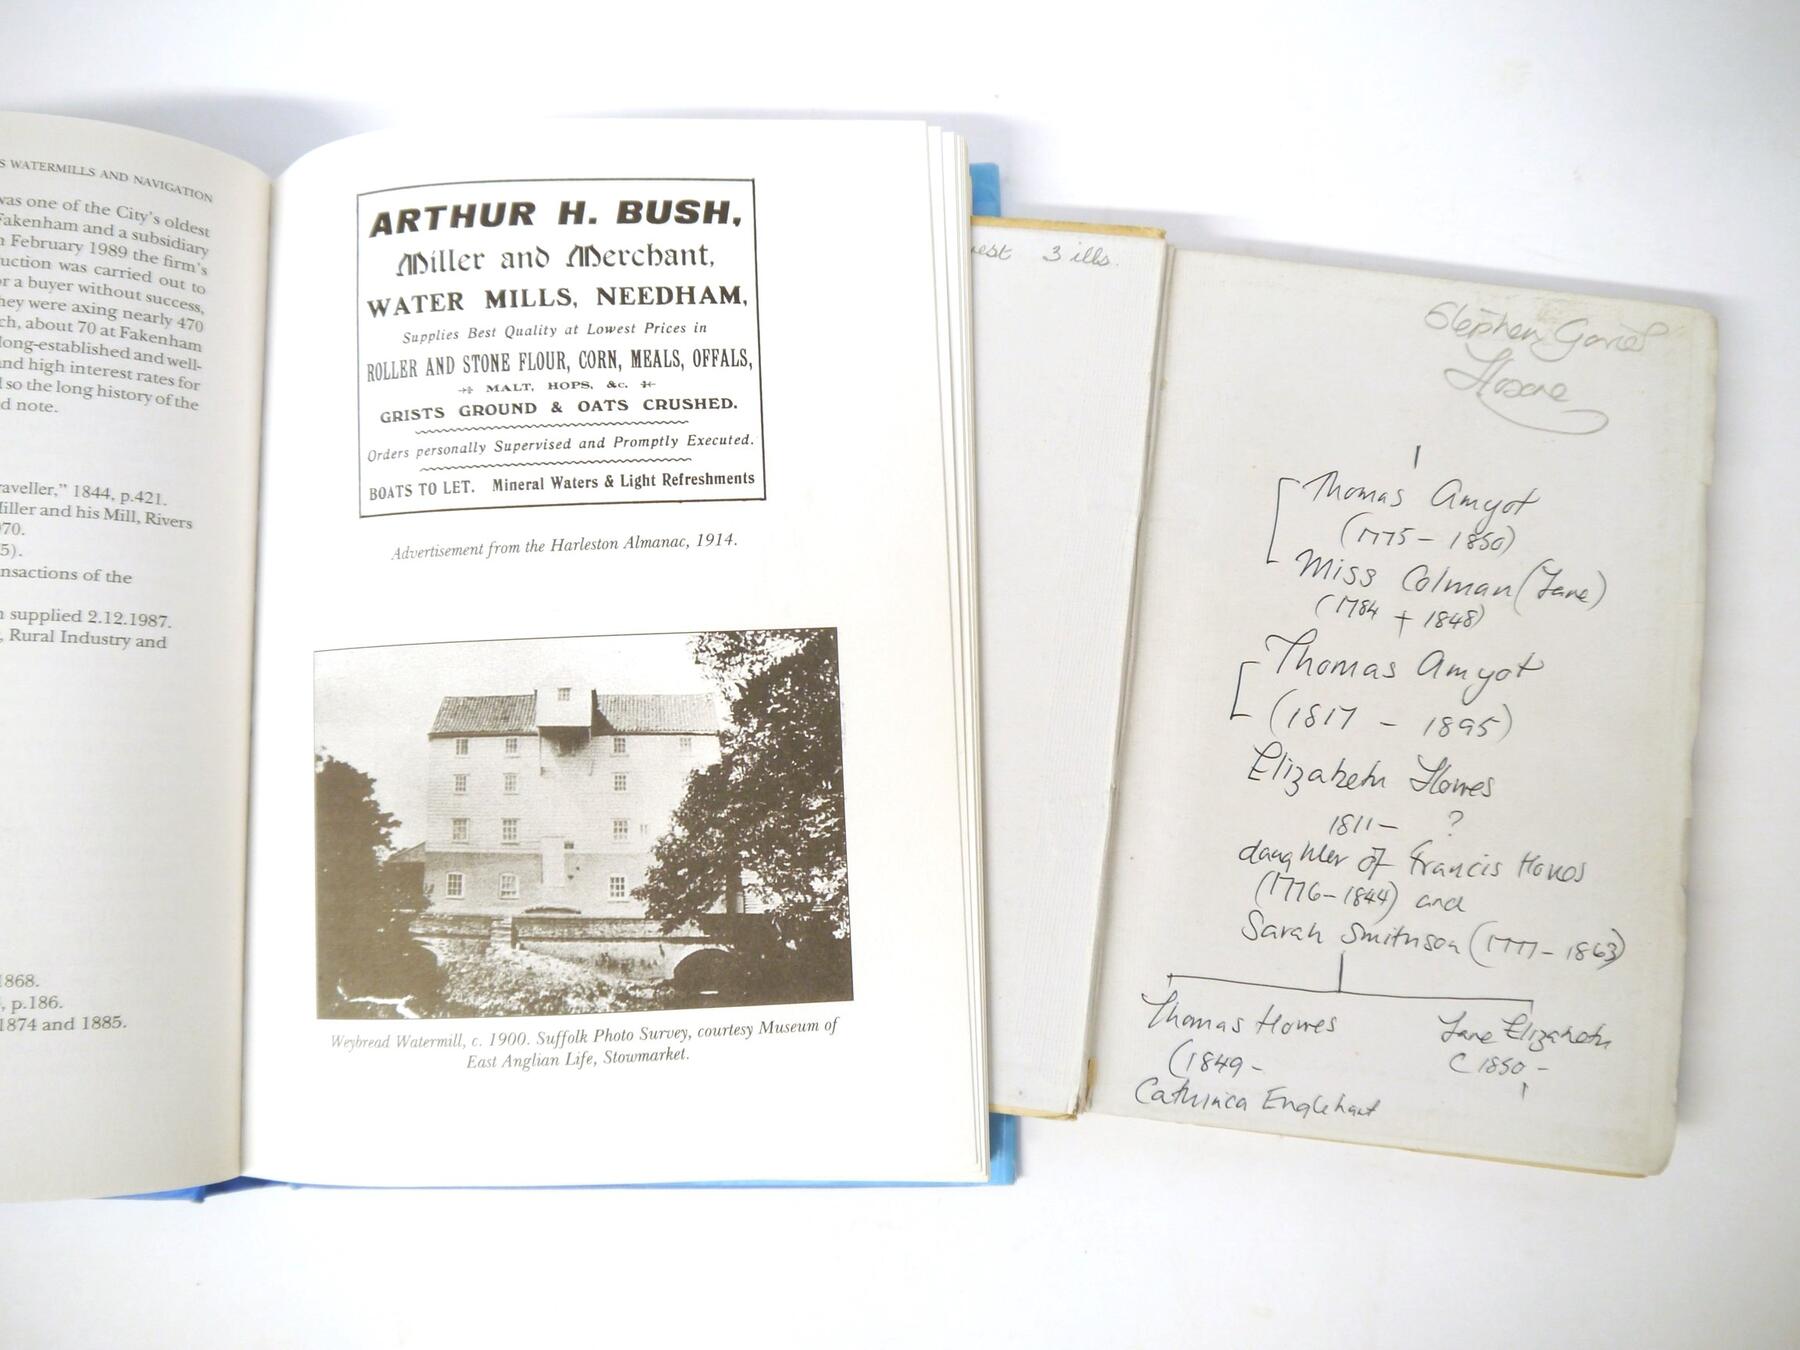 S WATERMILLS AND NAVIGATION
was one of the City's oldest
Fakenham and a subsidiary
n February 1989 the firm's
uction was carried out to
or a buyer without success,
hey were axing nearly 470
ch, about 70 at Fakenham
long-established and well-
and high interest rates for
l so the long history of the
d note.
raveller," 1844, p.421.
Miller and his Mill, Rivers
970.
5).
nsactions of the
n supplied 2.12.1987.
, Rural Industry and
1868.
, p.186.
1874 and 1885.
ARTHUR H. BUSH,
Miller and Merchant,
WATER MILLS, NEEDHAM,
Supplies Best Quality at Lowest Prices in
ROLLER AND STONE FLOUR, CORN, MEALS, OFFALS,
MALT, HOPS, &c.
GRISTS GROUND & OATS CRUSHED.
Orders personally Supervised and Promptly Executed.
BOATS TO LET. Mineral Waters & Light Refreshments
Advertisement from the Harleston Almanac, 1914.
Weybread Watermill, c. 1900. Suffolk Photo Survey, courtesy Museum of
East Anglian Life, Stowmarket.
3 ills.
Stephen Govier
Hoxne
Thomas Amyot
(1775 - 1850)
Miss Colman (Jane)
(1784 + 1848)
Thomas Amyot
(1817 - 1895)
Elizabeth Howes
1811 - ?
daughter of Francis Howes
(1776 - 1844) and
Sarah Smithson (1777 - 1863)
Thomas Howes
(1849 -
Cathrica Englehart
Jane Elizabeth
C 1850 -